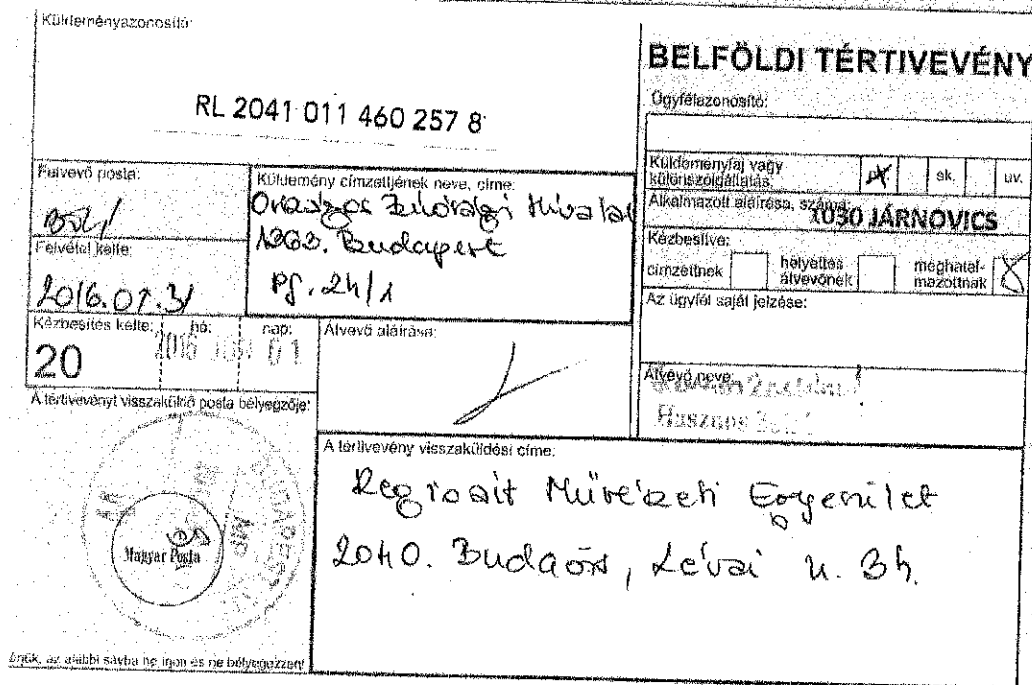 Küldeményazonosító:
RL 2041 011 460 257 8
BELFÖLDI TÉRTIVEVÉNY
Ügyfélazonosító:
Küldeményfaj vagy
különszolgáltatás:
ak.
uv.
Alkalmazott aláírása, száma:
1030 JÁRNOVICS
Kézbesítve:
címzettnek
helyettes
átvevőnek
meghatal-
mazottnak
Az ügyfél saját jelzése:
Átvevő neve:
Haszons
Felvevő posta:
Felvétel kelte:
2016.07.31
Küldemény címzettjének neve, címe:
Országos Bírósági Hivatal
1363. Budapest
Pf. 24/1
Kézbesítés kelte:
hó:
nap:
20
01
Átvevő aláírása:
A tértivevényt visszaküldő posta bélyegzője:
BUDAPEST
Magyar Posta
A tértivevény visszaküldési címe:
Művészeti Egyesület
2040. Budaörs, Lévai u.
az alábbi sávba ne írjon és ne bélyegezzen!